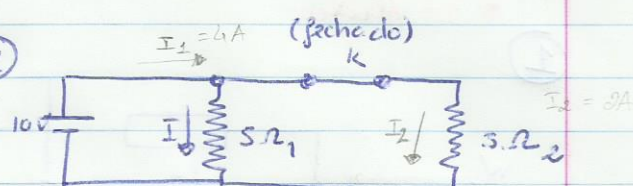 I1 = 4A
(fechado)
K
10V
I
5Ω1
I2
5Ω2
I2 = 2A